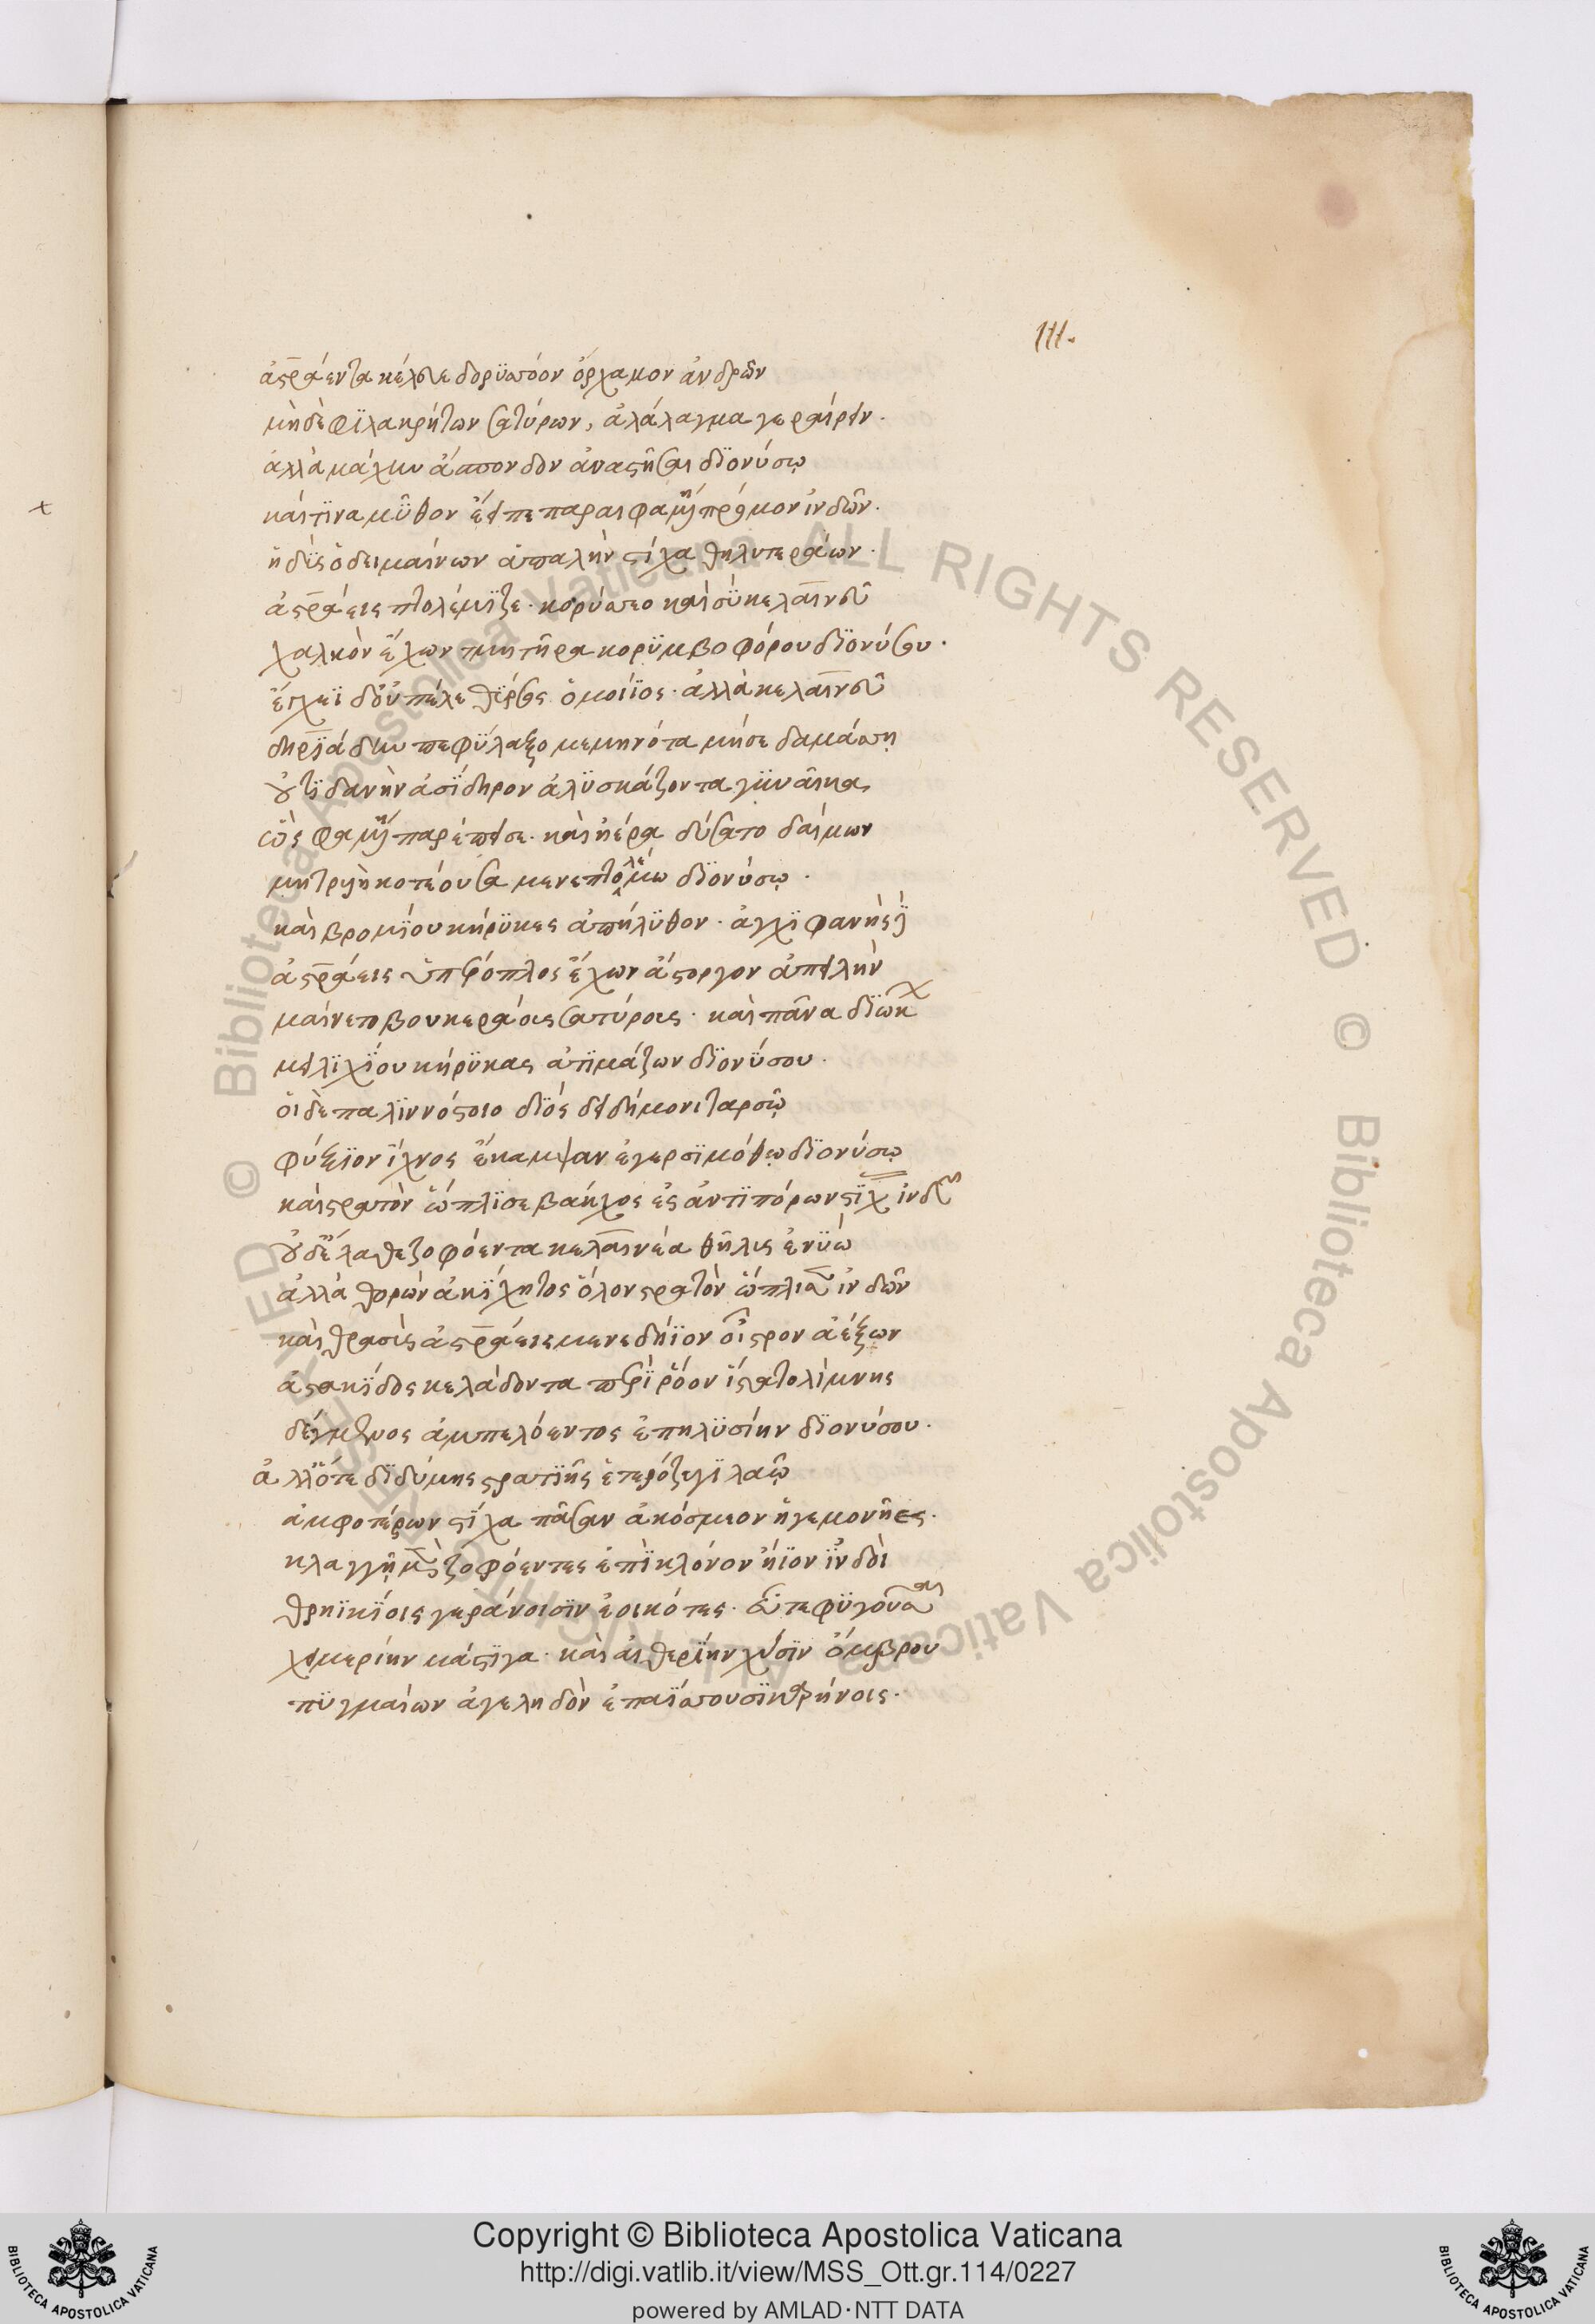 111.
ἀστράεντα κέλευε δορϋσσόον ὄρχαμον ἀνδρῶν
μὴ δὲ φϊλακρήτων σατύρων, ἀλάλαγμα γεραίρειν.
ἀλλὰ μάχην ἄσπονδον ἀναστῆσαι δϊονύσω
καί τϊνα μῦθον ἔειπε παραιφαμένη πρόμον ἰνδῶν.
ἡδὺς ὁ δειμαίνων ἁπαλὴν στίχα θηλυτεράων.
ἀστράεις πτολέμϊζε. κορύσσεο καὶ σὺ κελαινεῦ
χαλκὸν ἔχων τμητῆρα κορϋμβοφόρου δϊονύσου.
ἔγχεϊ δ' οὐ πέλε θύρσος ὁμοίϊος. ἀλλὰ κελαινεῦ
θηρϊάδην πεφύλαξο μεμηνότα μή σε δαμάσση
οὐτϊδανὴν ἀσίδηρον ἀλϋσκάζοντα γϋναῖκα
ὣς φαμένη παρέπεισε. καὶ ἠέρα δύσατο δαίμων
μητρυιὴ κοτέουσα μενεπτολέμω δϊονύσω.
καὶ βρομίου κήρϋκες ἀπήλϋθον. ἀγχϊφανὴς
ἀστράεις ὑπέροπλος ἔχων ἄστοργον ἀπειλὴν
μαίνετο βουκεράοις σατύροις. καὶ πᾶνα δϊώκων
μειλϊχίου κήρϋκας ἀτϊμάζων δϊονύσου.
οἱ δὲ παλϊννόστοιο διὸς δειδήμονι ταρσῶ
φύξϊον ἴχνος ἔκαμψαν ἐγερσϊμόθω δϊονύσω
καὶ στρατὸν ὥπλϊσε βάκχος ἐς ἀντϊπόρων στίχας ἰνδῶν
οὐδ' ἔλαθε ζοφόεντα κελαινέα θῆλις ἐνϋώ
ἀλλὰ θορὼν ἀκίχητος ὅλον στρατὸν ὥπλισεν ἰνδῶν
καὶ θρασὺς ἀστράεις μενεδήϊον οἶστρον ἀέξων
ἀστακίδος κελάδοντα περὶ ῥόον ἵστατο λίμνης
δέγμενος ἀμπελόεντος ἐπηλυσίην δϊονύσου.
ἀλλ' ὅτε δϊδύμης στρατϊῆς ἑτερόζυγϊ λαῶ
ἀμφοτέρων στίχα πᾶσαν ἀκόσμεον ἡγεμονῆες.
κλαγγῇ μὲν ζοφόεντες ἐπὶ κλόνον ἤϊον ἰνδοὶ
θρηϊκίοις γεράνοισϊν ἐοικότες. εὖτε φϋγοῦσαι
χειμερίην μάστϊγα. καὶ αἰθερίην χύσϊν ὄμβρου
πϋγμαίων ἀγεληδὸν ἐπαΐσσουσϊ καρήνοις.
Copyright © Biblioteca Apostolica Vaticana
http://digi.vatlib.it/view/MSS_Ott.gr.114/0227
powered by AMLAD·NTT DATA
© Biblioteca Apostolica Vaticana ALL RIGHTS RESERVED © Biblioteca Apostolica Vaticana ALL RIGHTS RESERVED
BIBLIOTECA APOSTOLICA VATICANA
BIBLIOTECA APOSTOLICA VATICANA